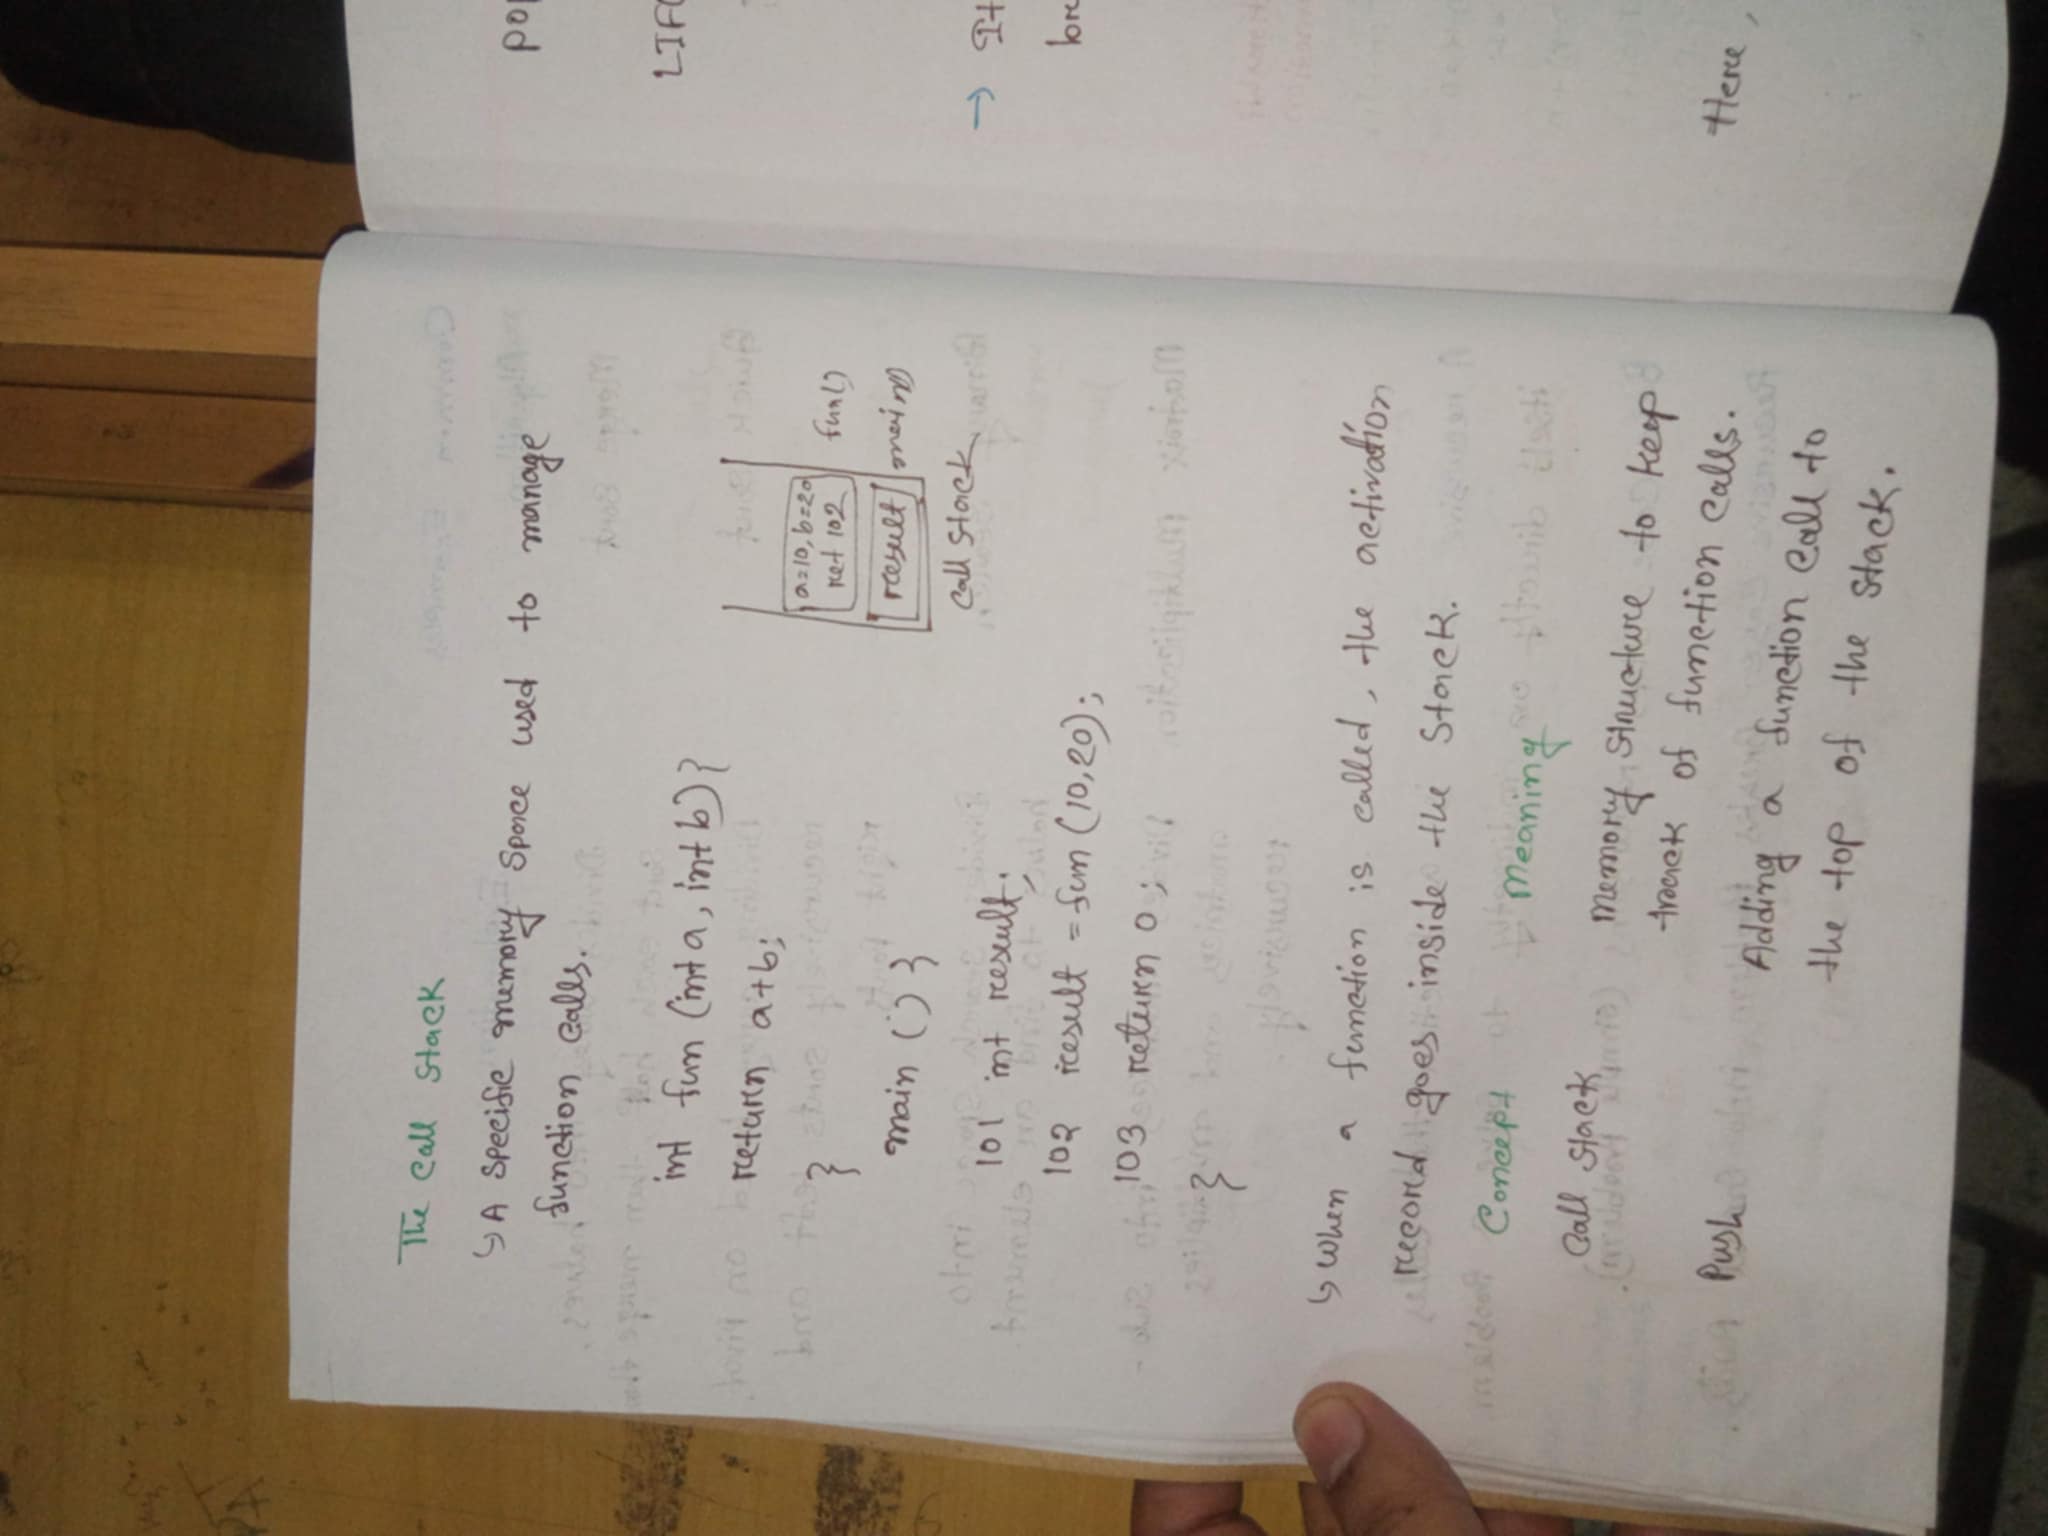 The Call Stack
↳ A specific memory space used to manage
function calls.
int fun (int a, int b) {
return a+b;
}
main () {
101 int result;
102 result = fun (10,20);
103 return 0;
}
a=10, b=20
ret 102
fun()
result
main()
Call Stack
↳ When a function is called, the activation
record goes inside the Stack.
Concept Meaning
Call Stack Memory Structure to keep
track of function calls.
Push Adding a function call to
the top of the stack.
→ It
Here,